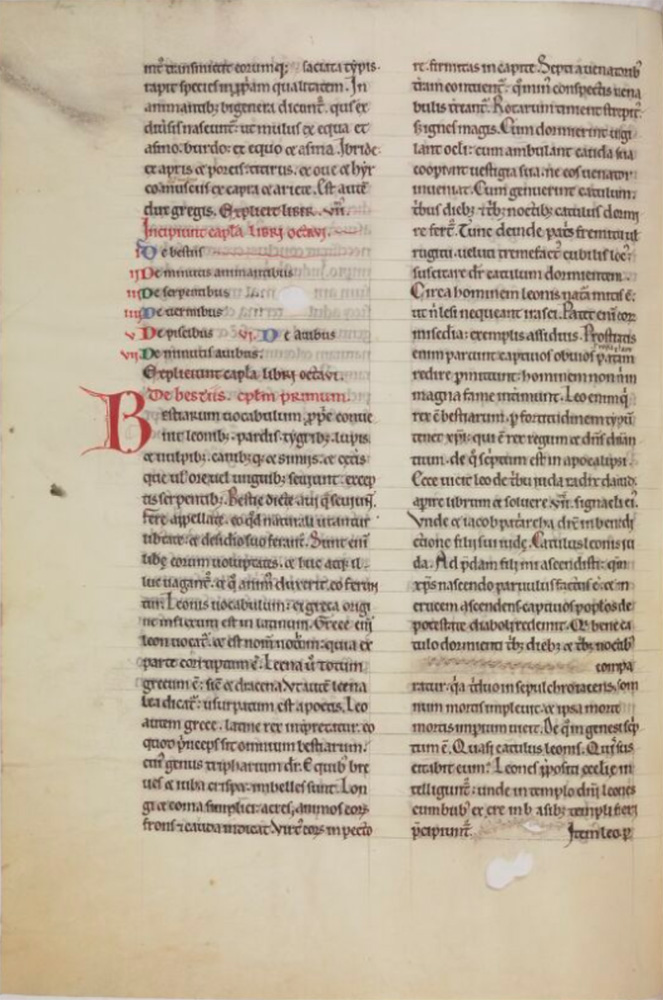 rapit species in
animantibꝫ bigenera dicunt̄. qui ex
diuisis nascunt̄: ut mulus ex equa et
asino. burdo: ex equo et asina. Ibride
ex apris et porcis: titirus. ex oue et hyr
co: musmus ex capra et ariete. Est aut̄
dux gregis. Explicit liber. vii.
Incipiunt capl̄a libri octaui.
i De bestiis
ii De minutis animantibus
iii De serpentibus
iiii De uermibus
v De piscibus vi. De auibus
vii De minutis auibus.
Expliciunt capl̄a libri octaui.
De bestiis. cpl̄m primum.
Bestiarum uocabulum. ꝓpe conue
nit leonibꝫ. pardis. tygribꝫ. lupis.
et uulpibꝫ. canibꝫqꝫ et simiis. et cet̄is
que ul' ore uel unguibꝫ seuiunt. excep
tis serpentibꝫ. Bestie dicte a ui q̄ seuiunt̄.
fere appellate. eo qđ naturali utantur
libtate. et desiderio suo ferant̄. Sunt eni
libe eorum uoluptates. et huc atqꝫ il
luc uagant̄. et q̄ anim' duxerit. eo ferun
tur. Leonis uocabulum: ex greca origi
ne inflexum est in latinum. Grece eni
leon uocat̄. et est nom̄ nothum: quia ex
parte corruptum ē. Leena u̅ totum
grecum ē: sic̄ et dracena. Vt aut̄ leena
lea dicat̄: usurpatum est a poetis. Leo
autem grece. latine rex inpretatur. eo
quod p̄nceps sit omnium bestiarum.
cui' genus triphariam dr̄. E quibꝫ bre
ues et iuba crispa. inbelles sunt. Lon
gi et coma simplici: acres. animos eoꝝ
frons ⁊ cauda indicat. Virt' eoꝝ in pecto
re. firmitas in capite. Septi a uenatoribꝫ
t̄ram contuent̄. q̄ min' conspectis uena
bulis t̄reant̄. Rotarum timent strepit'.
s; ignes magis. Cum dormierint uigi
lant oc̄li: cum ambulant cauda sua
cooꝑiunt uestigia sua. ne eos uenator
inueniat. Cum genuerint catulum.
t̄bus diebꝫ et t̄bꝫ noctibꝫ catulus dormi
re fert̄. Tunc deinde pat's fremitu ul
rugitu. ueluti tremefact' cubilis loc'
suscitare dr̄ catulum dormientem.
Circa hominem leonis natura mitis ē.
ut n̄ lesi nequeant irasci. Patet eni eoꝝ
misc̄dia: exemplis assiduis. Prostratis
enim parcunt. captiuos obuios patriam
redire ꝑmittunt. hominem non nisi
magna fame interimunt. Leo enim qꝫ
rex ē bestiarum. ꝓ fortitudinem typū
tenet xp̄i: qui ē rex regum et dn̄s dn̄an
tium. de q̄ scriptum est in apocalipsi.
Ecce uicit leo de t̄bu iuda radix dauid.
aꝑire librum et soluere. vii. signacl'a ei'.
Vnde et iacob patriarcha dr̄e in benedi
ctione filii sui iude. Catulus leonis iu
da. Ad p̄dam fili mi ascendisti. quia
xp̄s nascendo paruulus factus ē. et in
crucem ascendens captiuos pop̄los de
potestate diaboli redemit. Et bene ca
tulo dormienti t̄bꝫ diebꝫ et t̄bꝫ noctibꝫ
compa
ratur. q̄a t̄duo in sepulchro iacens. som
num mortis impleuit. et ipsa morte
mortis imꝑium uicit. De q̄ in genesi sc̄p
tum ē. Quasi catulus leonis. Quis sus
citabit eum? Leones ꝓpositi eccl'ie in
telligunt̄: unde in templo dn̄i leones
cum bubꝫ ex ere in basibꝫ templi fieri
p̄cipiunt̄. Item leo ꝑ